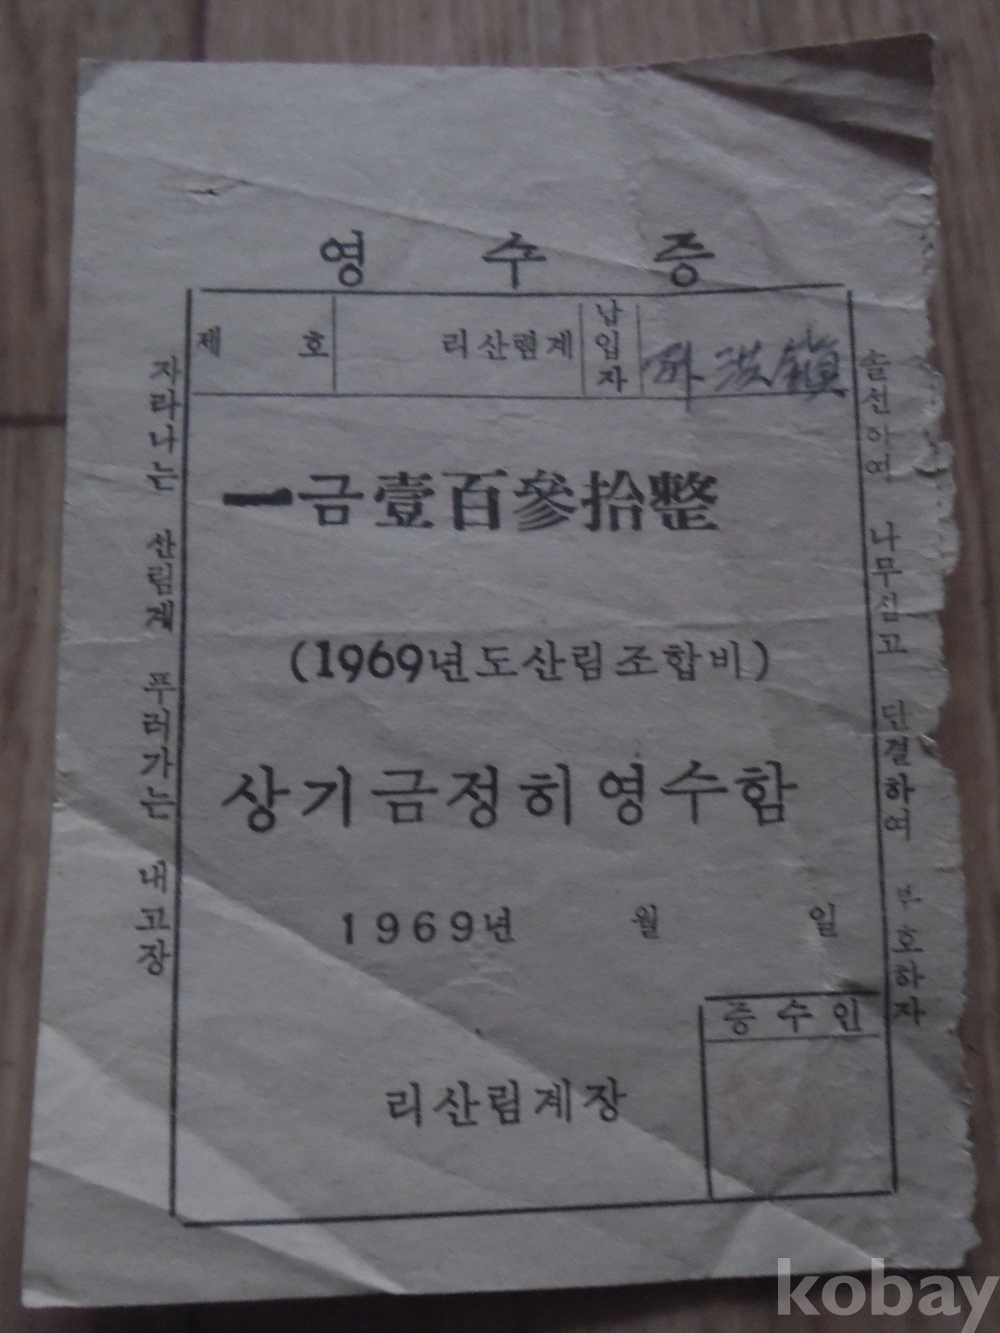 영 수 증
제 호
리산렴계
납입자
洪鎭
一금壹百參拾整
(1969년도산림조합비)
상기금정히영수함
1969년 월 일
증수인
리산림계장
자라나는 산림계 푸러가는 내고장
솔선하여 나무심고 단결하여 부호하자
kobay